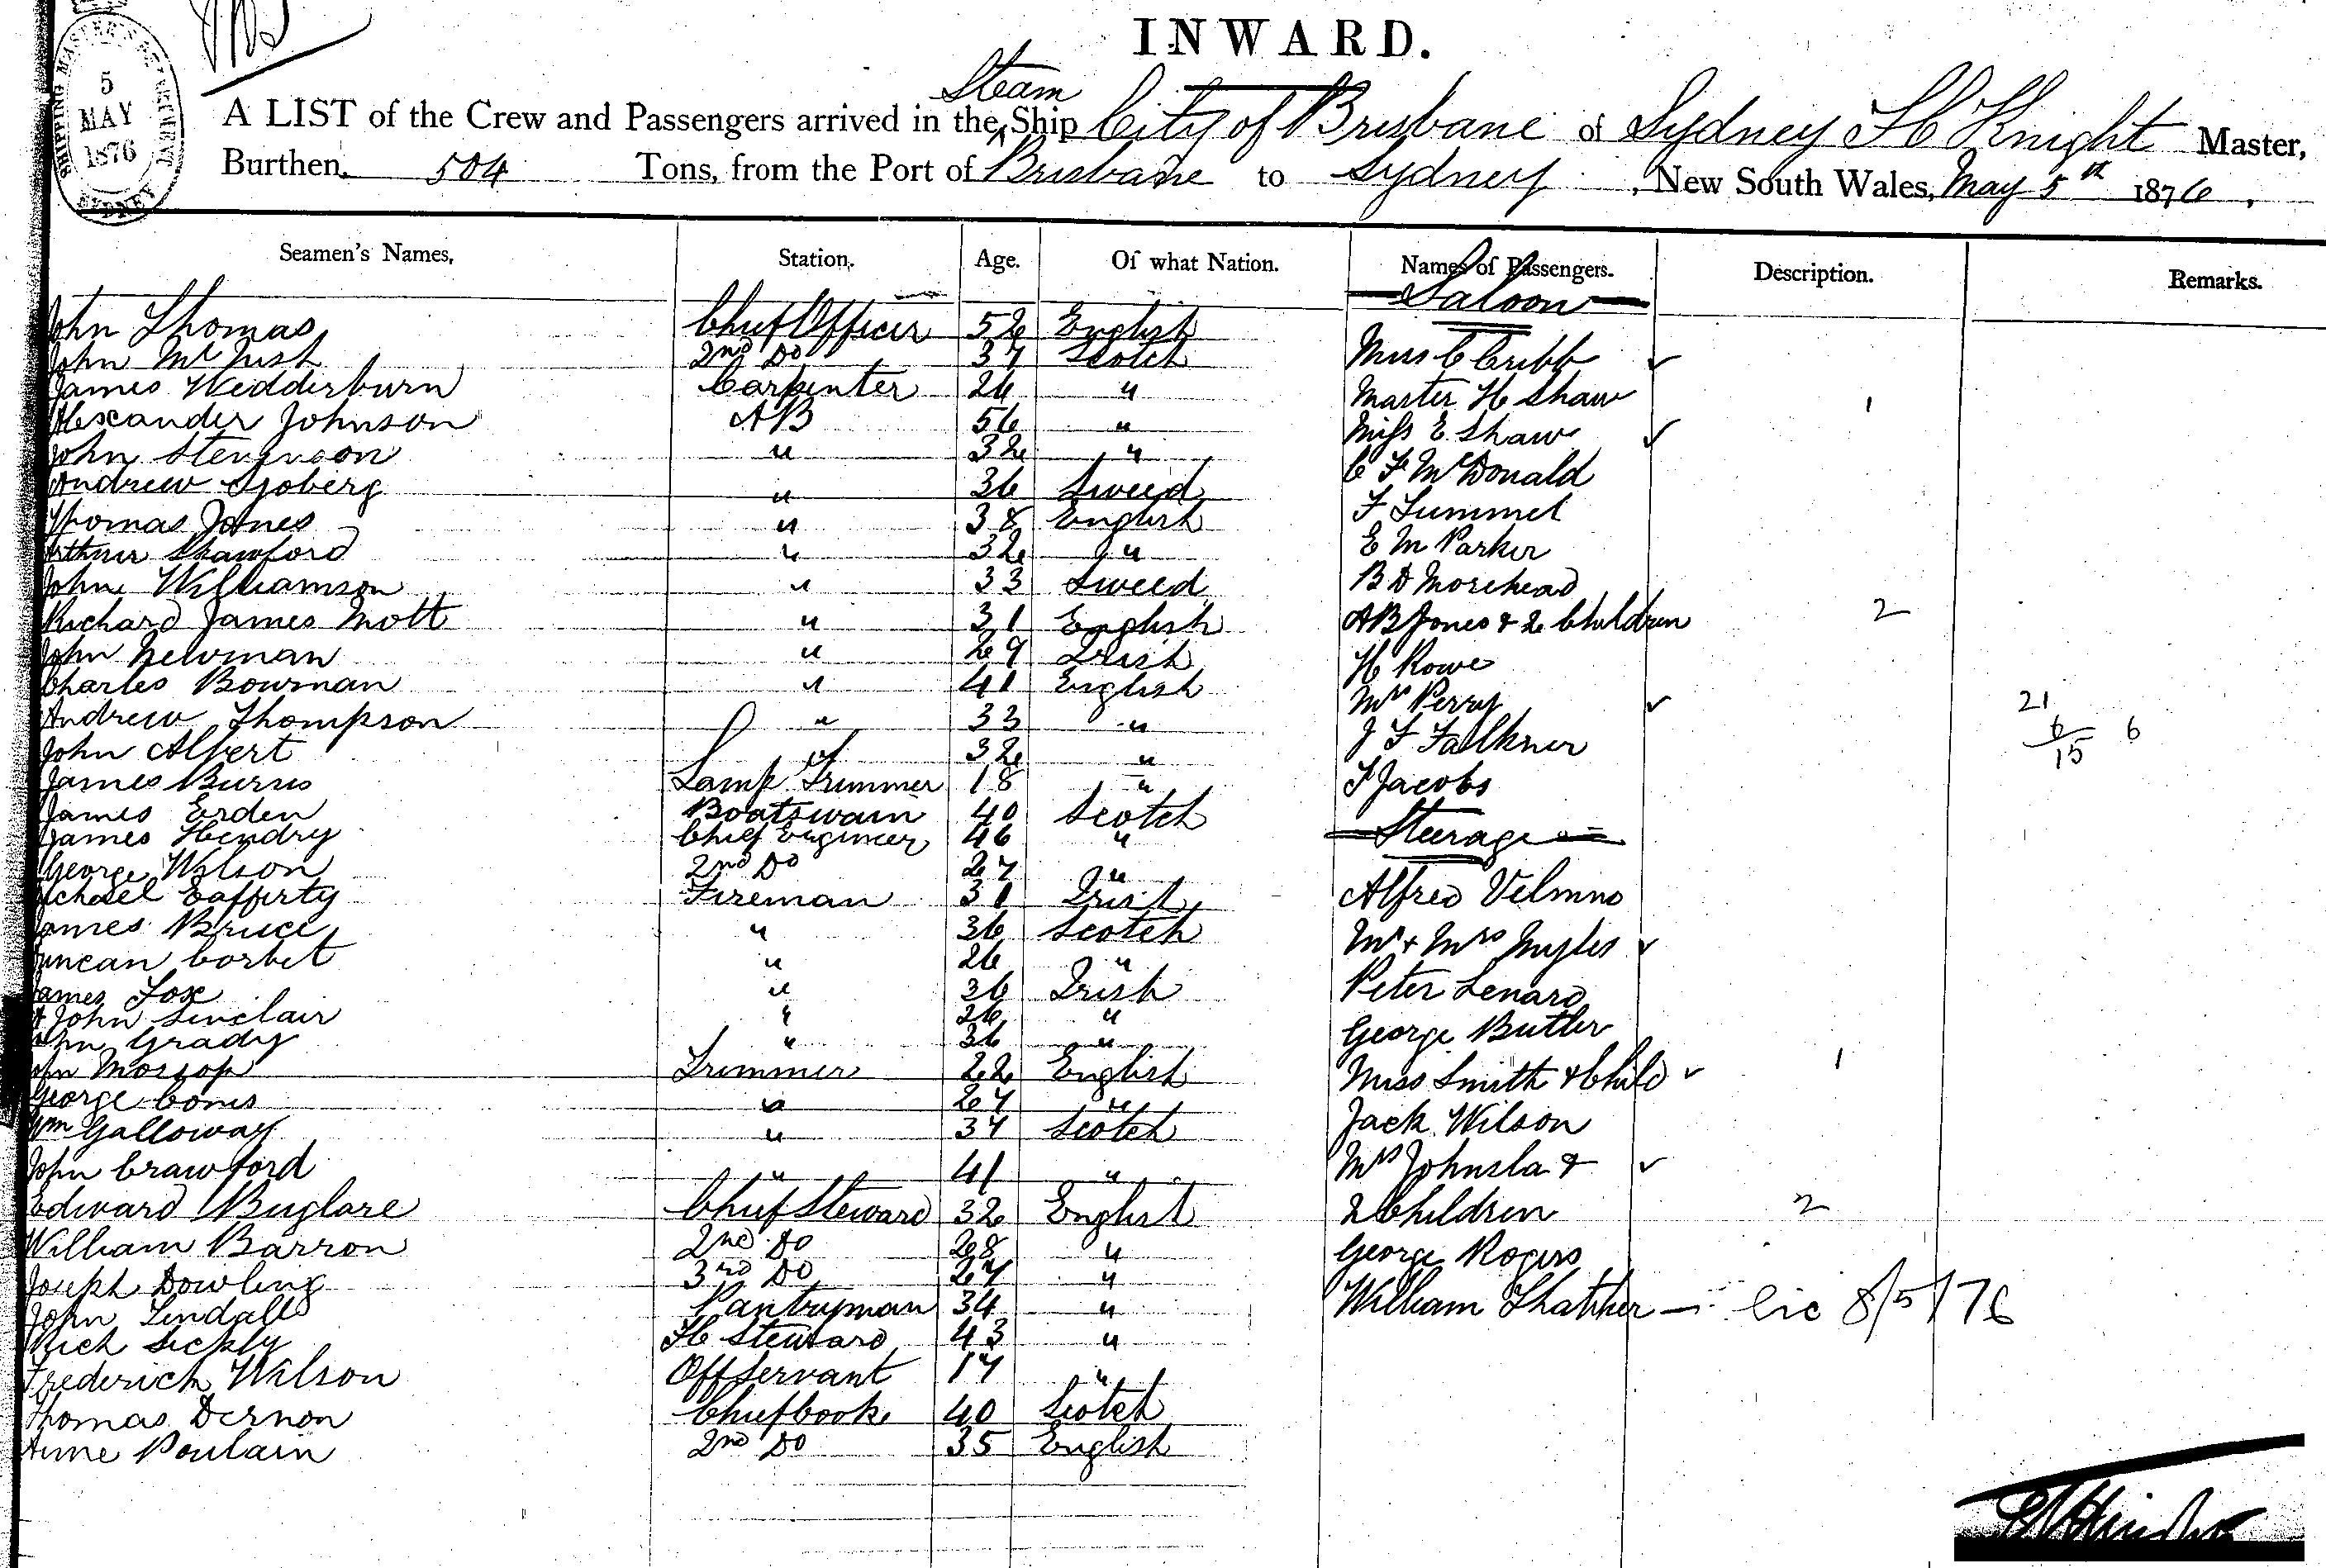 INWARD.
SHIPPING MASTER'S DEPARTMENT
5
MAY
1876
SYDNEY
A LIST of the Crew and Passengers arrived in the Steam Ship City of Brisbane of Sydney Knight Master,
Burthen 504 Tons, from the Port of Brisbane to Sydney, New South Wales, May 5th 1876.
Seamen's Names, Station, Age. Of what Nation. Names of Passengers. Description. Remarks.
Saloon
John Thomas Chief Officer 52 English
John Mc 2nd Do 37 Scotch Miss C Cribb ✓
James Wedderburn Carpenter 26 " Master H Shaw 1
Alexander Johnson AB 56 " Miss E. Shaw ✓
John Stevenson " 32 " C F McDonald
Andrew Sjoberg " 36 Sweed F
Thomas Jones " 38 English E M Parker
Arthur Shawford " 32 " B D Morehead
John Williamson " 33 Sweed A B Jones & 2 Children 2
Richard James Mott " 31 English H Rowe
John Newman " 29 Irish Mrs Perry ✓
Charles Bowman " 41 English J F Falkner
Andrew Thompson " 33 " F Jacobs
21
6 6
15
John Albert " 32 "
James Burns Lamp Trimmer 18 "
James Erden Boatswain 40 Scotch Steerage
James Hendry Chief Engineer 46 "
George Wilson 2nd Do 27 " Alfred
Michael Lafferty Fireman 31 Irish Mr & Mrs Myles ✓
James Bruce " 36 Scotch Peter Lenard
Duncan Corbet " 26 " George Butler
James Fox " 36 Irish Miss Smith & Child ✓ 1
John Sinclair " 26 " Jack Wilson
John Grady " 36 " Mrs Johnsla & ✓
John Morsop Trimmer 22 English 2 Children 2
George Cones " 27 " George Rogers
Wm Galloway " 37 Scotch William Thatcher — lic 8/5/76
John Crawford " 41 "
Edward Buglare Chief Steward 32 English
William Barron 2nd Do 28 "
Joseph Dowling 3rd Do 27 "
John Tindall Pantryman 34 "
Rich Sickly Steward 43 "
Frederick Wilson Off Servant 17 "
Thomas Dernon Chief Cook 40 Scotch
Aime Poulain 2nd Do 35 English